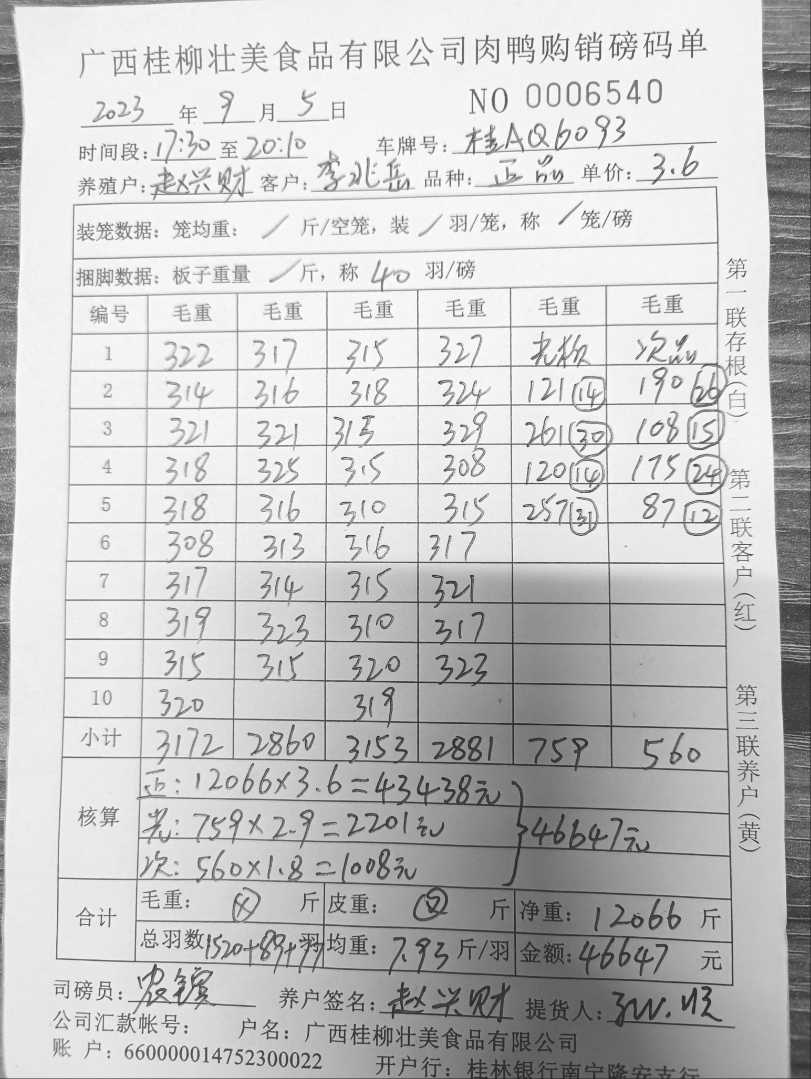 广西桂柳壮美食品有限公司肉鸭购销磅码单
2023 年 9 月 5 日 NO 0006540
时间段: 17:30 至 20:10 车牌号: 桂AQ6093
养殖户: 赵兴财 客户: 李兆岳 品种: 正品 单价: 3.6
装笼数据: 笼均重: / 斤/空笼, 装 / 羽/笼, 称 / 笼/磅
捆脚数据: 板子重量 / 斤, 称 40 羽/磅
编号 毛重 毛重 毛重 毛重 毛重 毛重
1 322 317 315 327 光板 次品
2 314 316 318 324 121 14 190 26
3 321 321 315 329 261 30 108 15
4 318 325 315 308 120 14 175 24
5 318 316 310 315 257 31 87 12
6 308 313 316 317
7 317 314 315 321
8 319 323 310 317
9 315 315 320 323
10 320 319
小计 3172 2860 3153 2881 759 560
核算
正: 12066×3.6=43438元
光: 759×2.9=2201元
次: 560×1.8=1008元
}46647元
合计
毛重: 斤 皮重: 斤 净重: 12066 斤
总羽数 1520+89+77 羽 均重: 7.93 斤/羽 金额: 46647 元
司磅员: 养户签名: 赵兴财 提货人:
公司汇款帐号: 户名: 广西桂柳壮美食品有限公司
账 户: 660000014752300022 开户行: 桂林银行南宁隆安支行
第一联存根(白)
第二联客户(红)
第三联养户(黄)